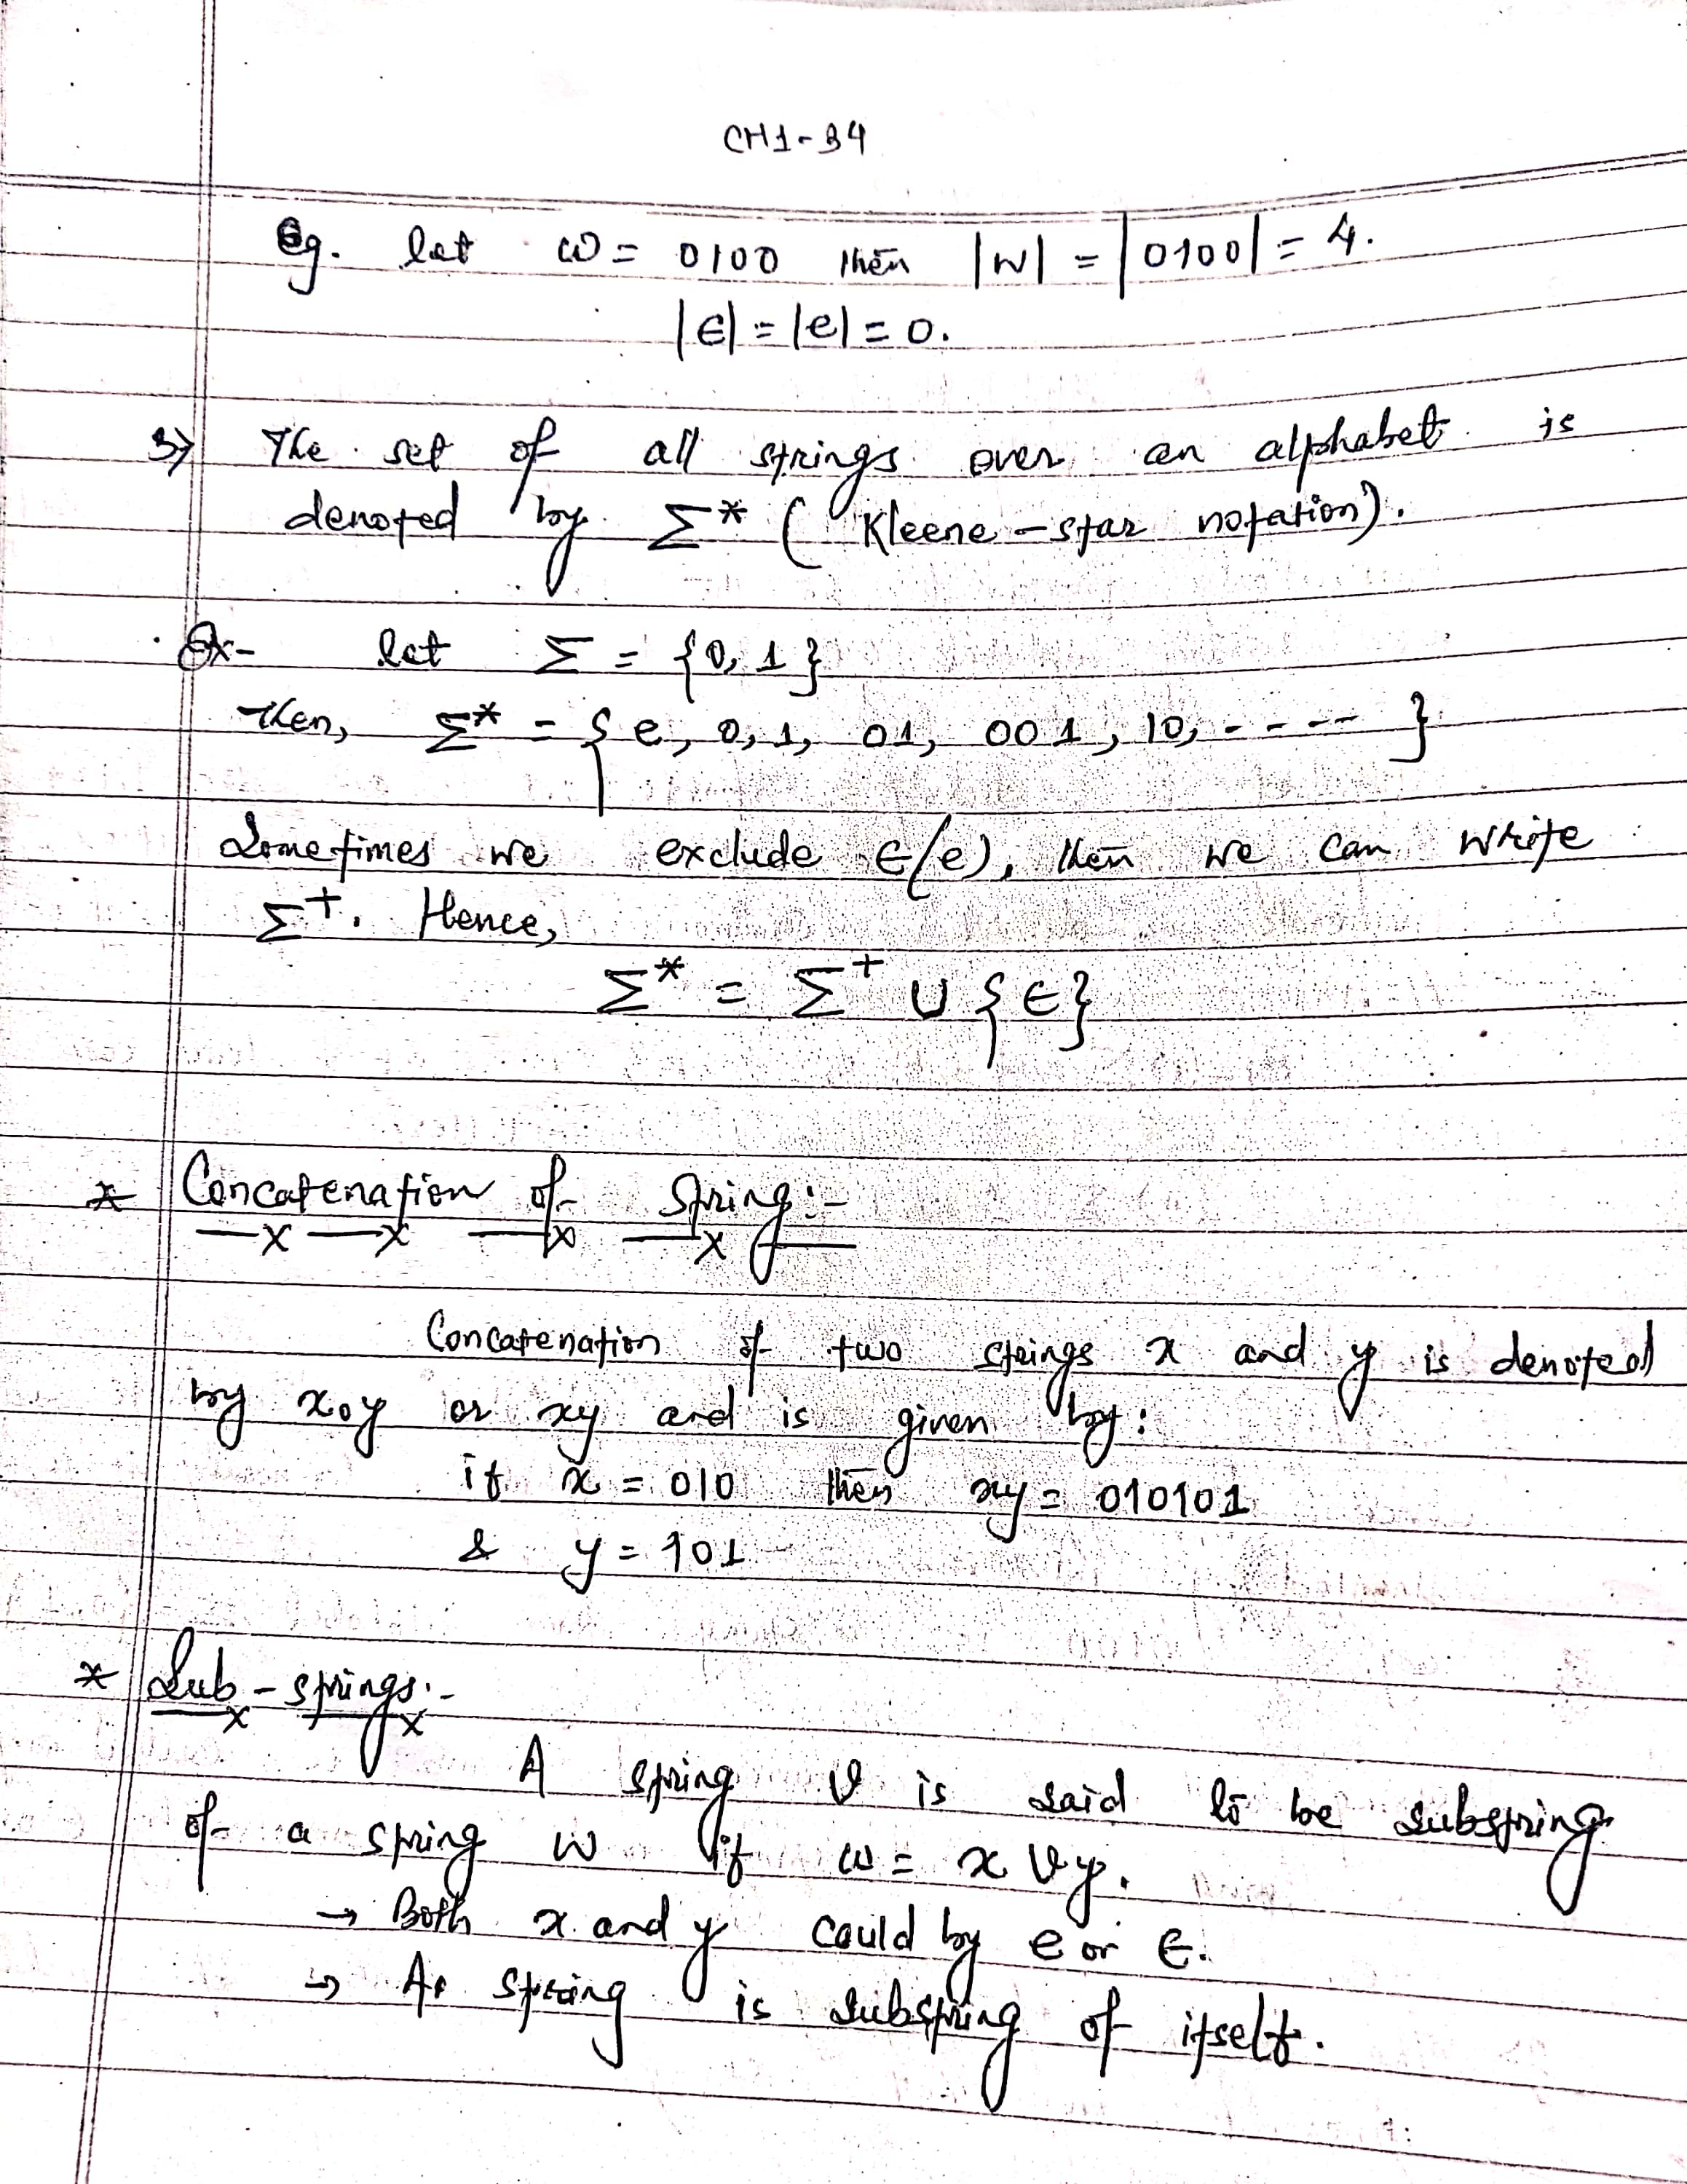 CH1-34
Eg. let w = 0100 then |w| = |0100| = 4.
|ϵ| = |e| = 0.
3) The set of all strings over an alphabet is
denoted by Σ* (Kleene-star notation).
Ex- let Σ = {0, 1}
Then, Σ* = {e, 0, 1, 01, 001, 10, ---- }
Sometimes we exclude ϵ(e), then we can write
Σ⁺. Hence,
Σ* = Σ⁺ ∪ {ϵ}
* Concatenation of String:-
Concatenation of two strings x and y is denoted
by xoy or xy and is given by:
if x = 010 then xy = 010101
& y = 101
* Sub-strings:-
A string v is said to be substring
of a string w if w = xvy.
→ Both x and y could by e or ϵ.
→ A string is substring of itself.